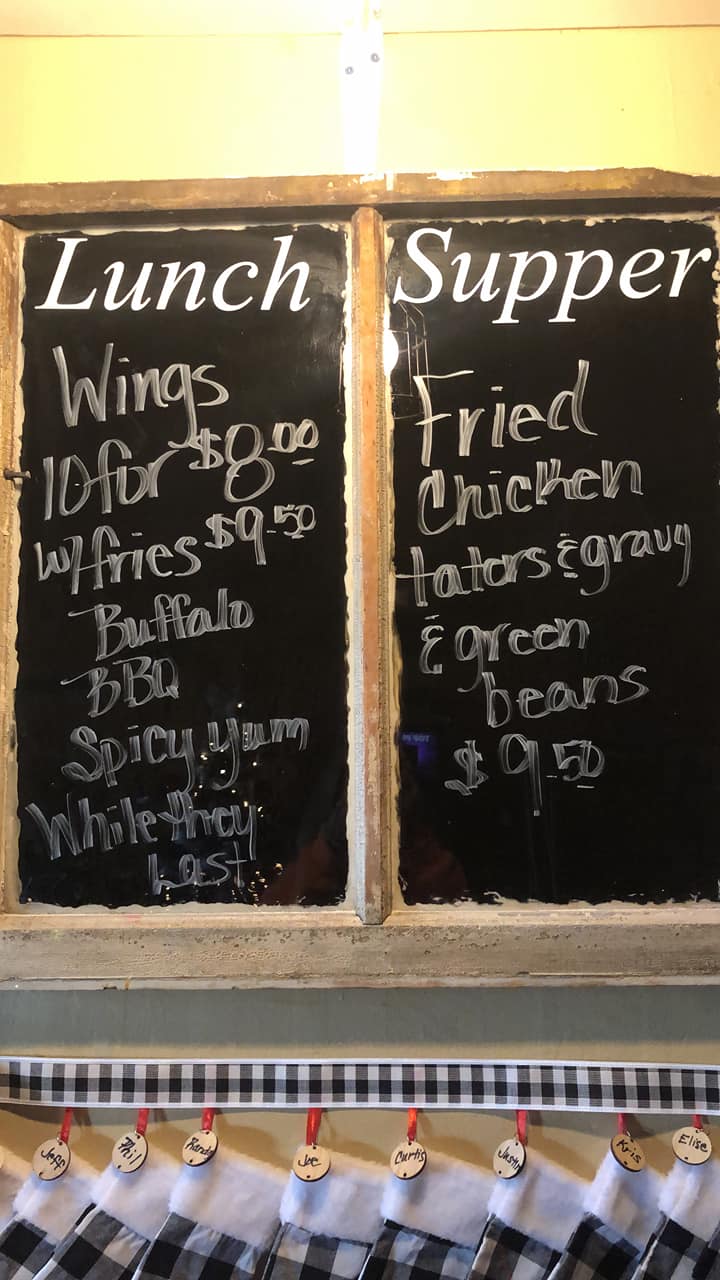 Lunch
Wings
10 for $8.00
w/fries $9.50
Buffalo
BBQ
Spicy Yum
While they
Last
Supper
Fried
Chicken
tators & gravy
& green
beans
$9.50
Jeff
Phil
Joe
Curtis
Justin
Kris
Elise